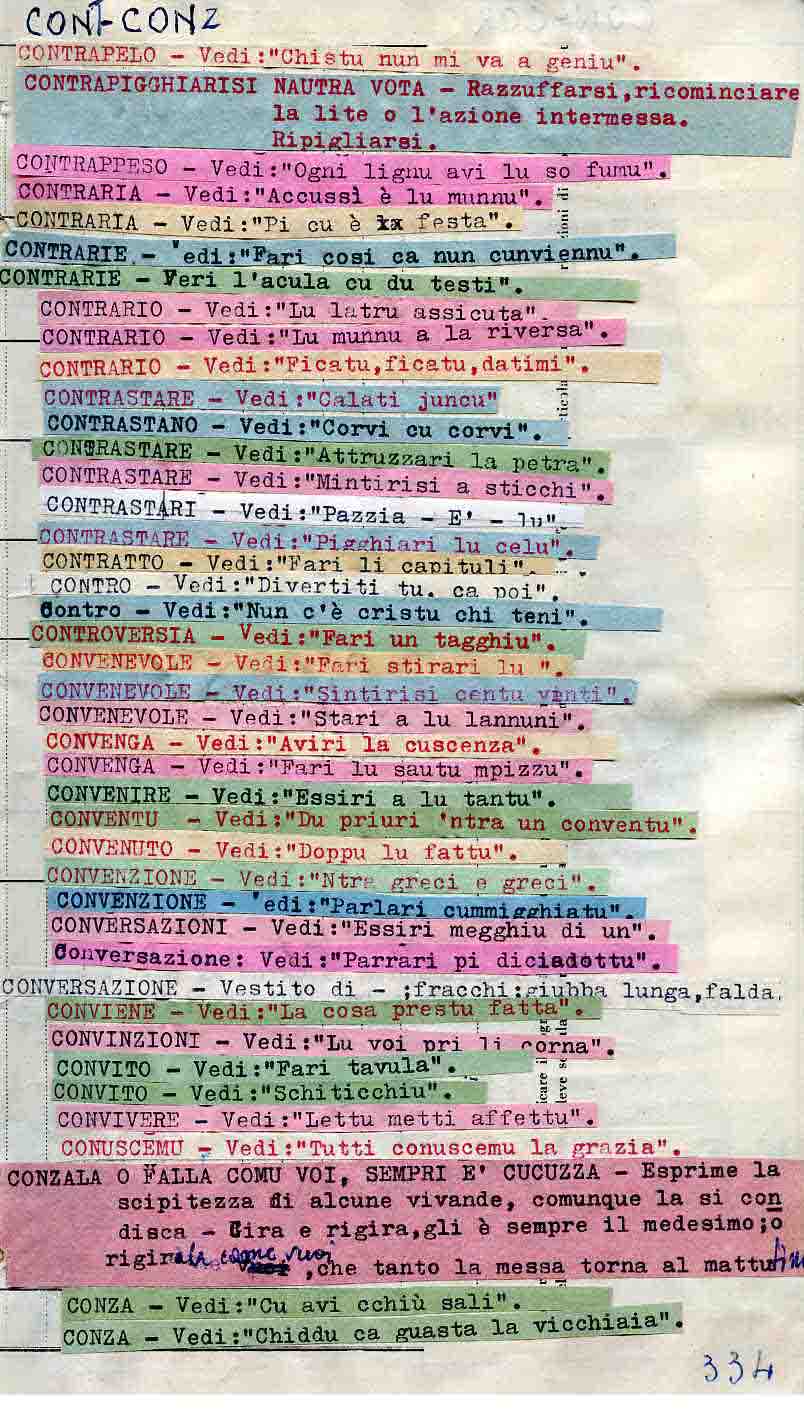 CONT-CONZ
CONTRAPELO - Vedi:"Chistu nun mi va a geniu".
CONTRAPIGGHIARISI NAUTRA VOTA - Razzuffarsi,ricominciare
la lite o l'azione intermessa.
Ripigliarsi.
CONTRAPPESO - Vedi:"Ogni lignu avi lu so fumu".
CONTRARIA - Vedi:"Accussì è lu munnu".
CONTRARIA - Vedi:"Pi cu è festa".
CONTRARIE - 'edi:"Fari cosi ca nun cunviennu".
CONTRARIE - Feri l'acula cu du testi".
CONTRARIO - Vedi:"Lu latru assicuta".
CONTRARIO - Vedi:"Lu munnu a la riversa".
CONTRARIO - Vedi:"Ficatu,ficatu,datimi".
CONTRASTARE - Vedi:"Calati juncu"
CONTRASTANO - Vedi:"Corvi cu corvi".
CONTRASTARE - Vedi:"Attruzzari la petra".
CONTRASTARE - Vedi:"Mintirisi a sticchi".
CONTRASTARI - Vedi:"Pazzia - E' - lu".
CONTRASTARE - Vedi:"Pigghiari lu celu".
CONTRATTO - Vedi:"Fari li capituli".
CONTRO - Vedi:"Divertiti tu, ca poi".
Contro - Vedi:"Nun c'è cristu chi teni".
CONTROVERSIA - Vedi:"Fari un tagghiu".
CONVENEVOLE - Vedi:"Fari stirari lu ".
CONVENEVOLE - Vedi:"Sintirisi centu vinti".
CONVENEVOLE - Vedi:"Stari a lu lannuni".
CONVENGA - Vedi:"Aviri la cuscenza".
CONVENGA - Vedi:"Fari lu sautu mpizzu".
CONVENIRE - Vedi:"Essiri a lu tantu".
CONVENTU - Vedi:"Du priuri 'ntra un conventu".
CONVENUTO - Vedi:"Doppu lu fattu".
CONVENZIONE - Vedi:"Ntra greci e greci".
CONVENZIONE - 'edi:"Parlari cummigghiatu".
CONVERSAZIONI - Vedi:"Essiri megghiu di un".
Conversazione: Vedi:"Parrari pi diciadottu".
CONVERSAZIONE - Vestito di - ;fracchi:giubba lunga,falda.
CONVIENE - Vedi:"La cosa prestu fatta".
CONVINZIONI - Vedi:"Lu voi pri li corna".
CONVITO - Vedi:"Fari tavula".
CONVITO - Vedi:"Schiticchiu".
CONVIVERE - Vedi:"Lettu metti affettu".
CONUSCEMU - Vedi:"Tutti conuscemu la grazia".
CONZALA O FALLA COMU VOI, SEMPRI E' CUCUZZA - Esprime la
scipitezza di alcune vivande, comunque la si con
disca - Gira e rigira,gli è sempre il medesimo;o
rigirala come vuoi ,che tanto la messa torna al mattutino
CONZA - Vedi:"Cu avi cchiù sali".
CONZA - Vedi:"Chiddu ca guasta la vicchiaia".
334